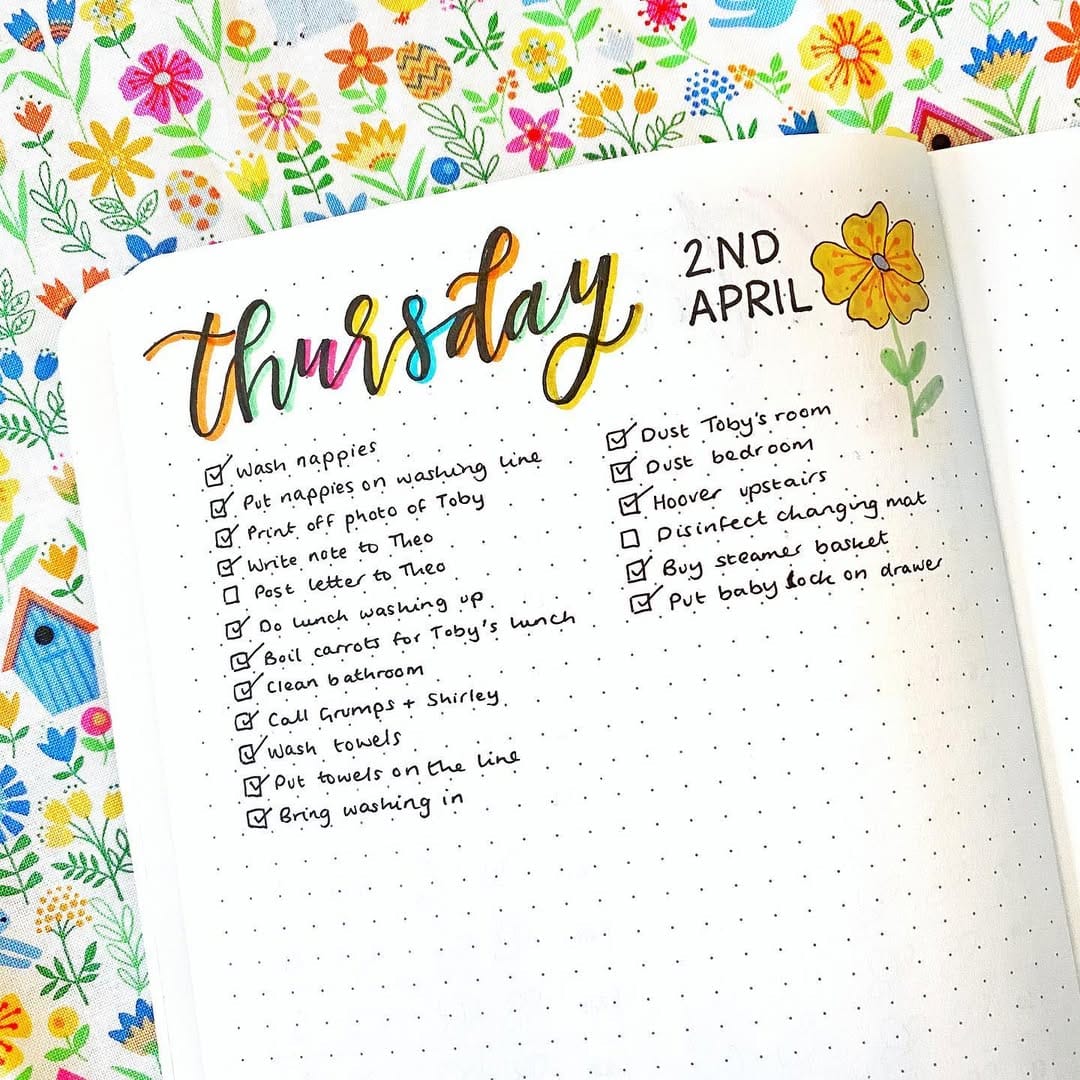 thursday
2ND
APRIL
Wash nappies
Put nappies on washing line
Print off photo of Toby
Write note to Theo
Post letter to Theo
Do lunch washing up
Boil carrots for Toby's lunch
Clean bathroom
Call Grumps + Shirley
Wash towels
Put towels on the line
Bring washing in
Dust Toby's room
Dust bedroom
Hoover upstairs
Disinfect changing mat
Buy steamer basket
Put baby lock on drawer